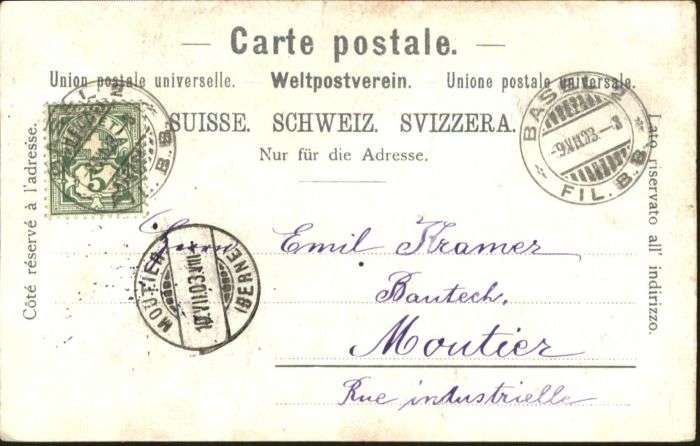 Carte postale.
Union postale universelle. Weltpostverein. Unione postale universale.
SUISSE. SCHWEIZ. SVIZZERA.
Nur für die Adresse.
Côté réservé à l'adresse.
Lato riservato all' indirizzo.
5
BASEL
FIL. B.B.
MOUTIER
(BERNE)
Herrn Emil Kramer
Bautech.
Moutier
Rue industrielle